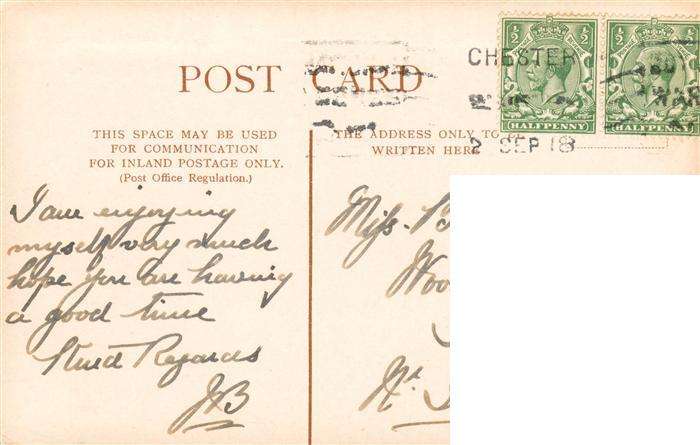 CHESTER
2 SEP 18
½ ½ ½ ½
HALFPENNY HALFPENNY
POST CARD
THIS SPACE MAY BE USED
FOR COMMUNICATION
FOR INLAND POSTAGE ONLY.
(Post Office Regulation.)
THE ADDRESS ONLY TO BE
WRITTEN HERE
I am enjoying
myself very much
hope you are having
a good time
Kind Regards
JB
Miss. B
Woo
Nr.